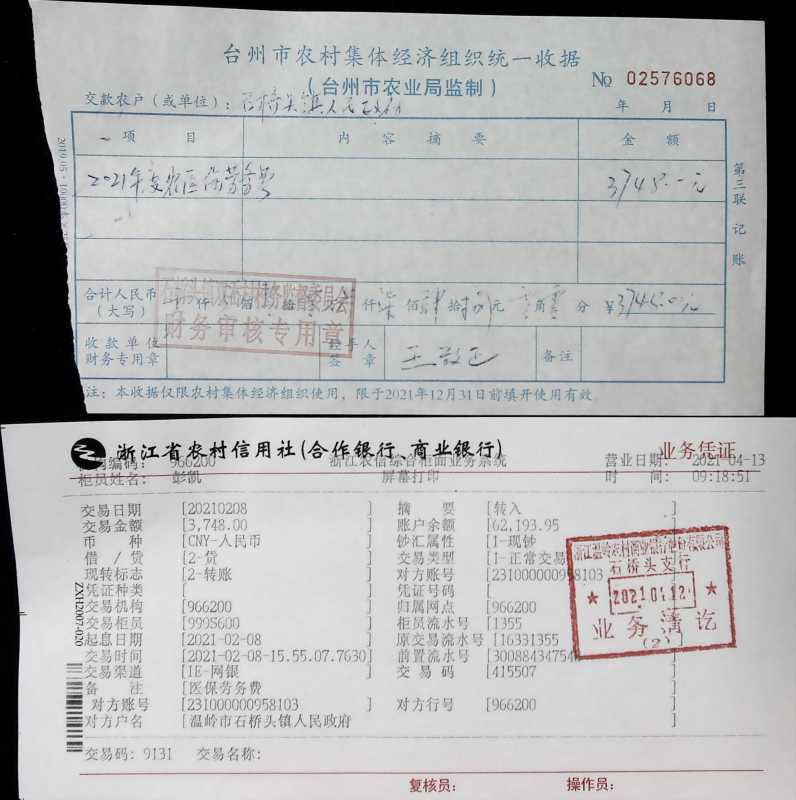 台州市农村集体经济组织统一收据
(台州市农业局监制)
No 02576068
交款农户(或单位): 石桥头镇人民政府
年 月 日
项 目 内 容 摘 要 金 额
2021年度农医保劳务费 3748.00元
第三联 记账
合计人民币(大写) 仟 佰 拾 零 万 叁 仟 柒 佰 肆 拾 捌 元 零 角 零 分 ¥3748.00元
财务审核专用章
收款单位财务专用章
经手人签章
备注
注: 本收据仅限农村集体经济组织使用, 限于2021年12月31日前填开使用有效。
浙江省农村信用社(合作银行、商业银行)
业务凭证
机构编码: 966200 浙江农信综合柜面业务系统 营业日期: 2021-04-13
柜员姓名: 彭凯 屏幕打印 时 间: 09:18:51
交易日期 [20210208 ] 摘 要 [转入
交易金额 [3,748.00 ] 账户余额 [62,193.95
币 种 [CNY-人民币 ] 钞汇属性 [1-现钞
借 / 贷 [2-贷 ] 交易类型 [I-正常交易
现转标志 [2-转账 ] 对方账号 [231000000958103
凭证种类 [ ] 凭证号码 [
交易机构 [966200 ] 归属网点 [966200
交易柜员 [999S600 ] 柜员流水号 [1355
起息日期 [2021-02-08 ] 原交易流水号 [16331355
交易时间 [2021-02-08-15.55.07.7630] 前置流水号 [300884347540
交易渠道 [IE-网银 ] 交 易 码 [415507
备 注 [医保劳务费 ]
对方账号 [231000000958103 ] 对方行号 [966200 ]
对方户名 [温岭市石桥头镇人民政府 ]
交易码: 9131 交易名称:
浙江温岭农村商业银行股份有限公司
石桥头支行
业务清讫
(2)
ZXH2007-020
复核员: 操作员: